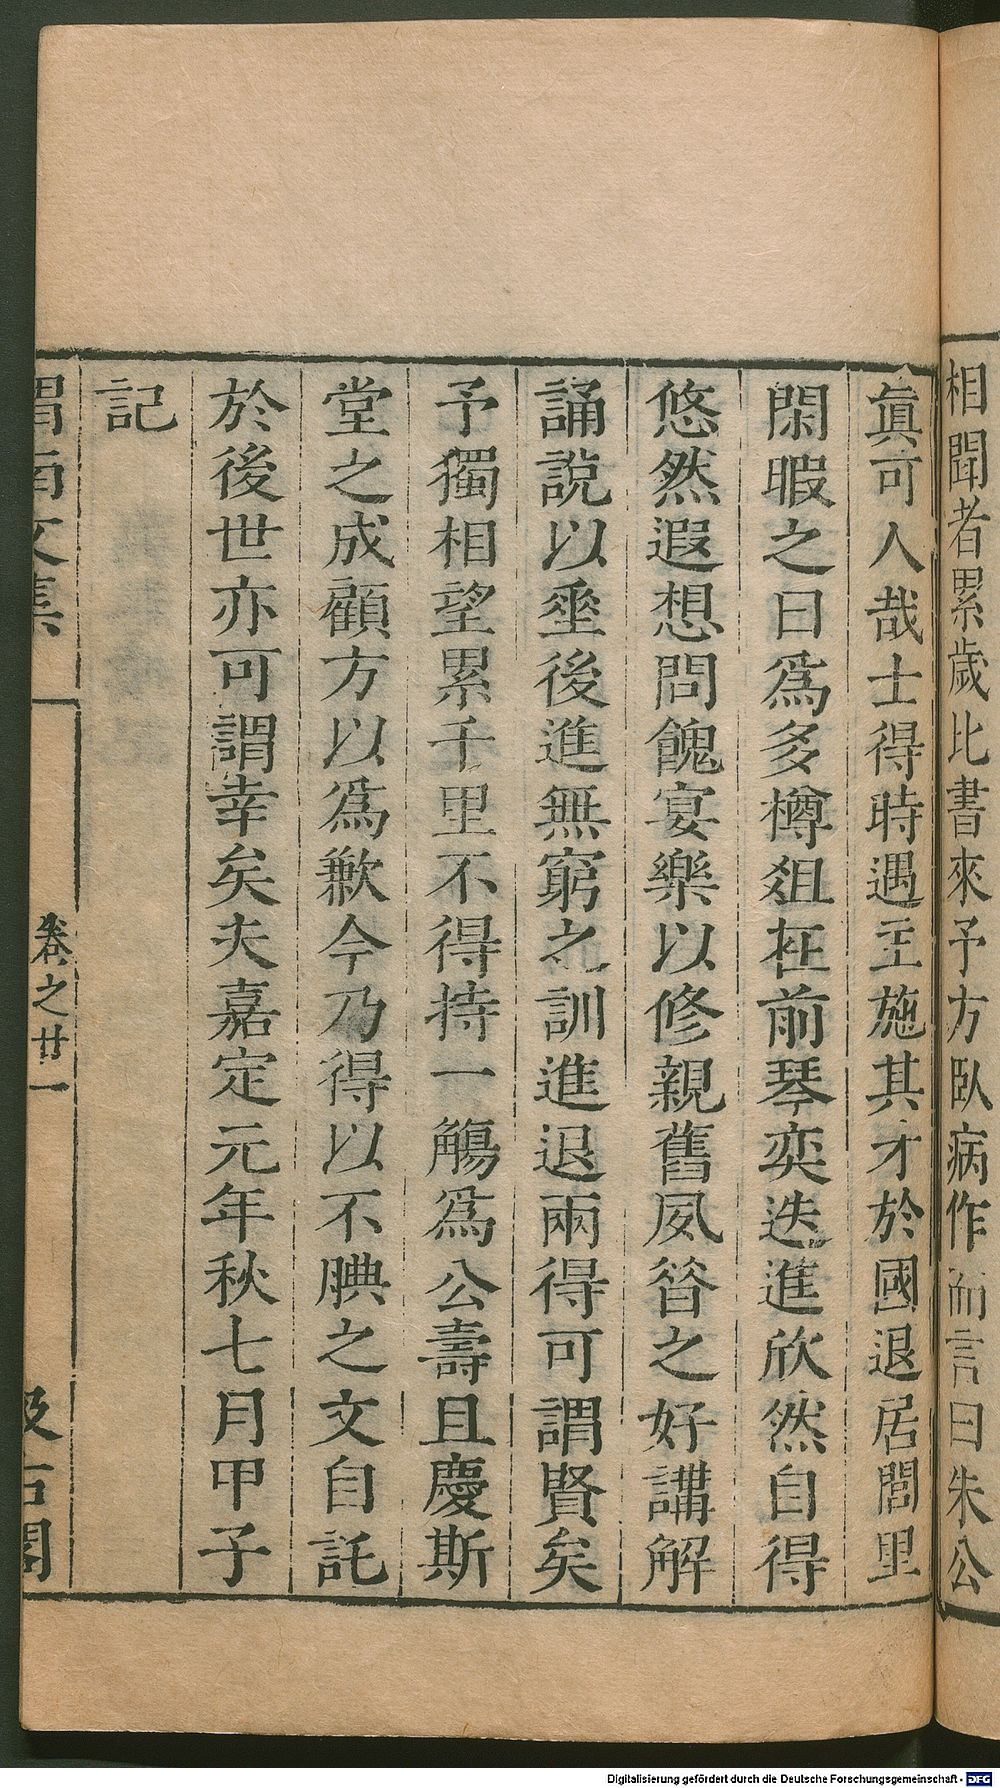 相聞者累歲比書來予方臥病作而言曰朱公
眞可人哉士得時遇主施其才於國退居閭里
閑暇之日爲多樽俎在前琴奕迭進欣然自得
悠然遐想問餽宴樂以修親舊夙昔之好講解
誦說以埀後進無窮之訓進退兩得可謂賢矣
予獨相望累千里不得持一觴爲公壽且慶斯
堂之成顧方以爲歉今乃得以不腆之文自託
於後世亦可謂幸矣夫嘉定元年秋七月甲子
記
渭南文集
卷之廿一
汲古閣
Digitalisierung gefördert durch die Deutsche Forschungsgemeinschaft - DFG